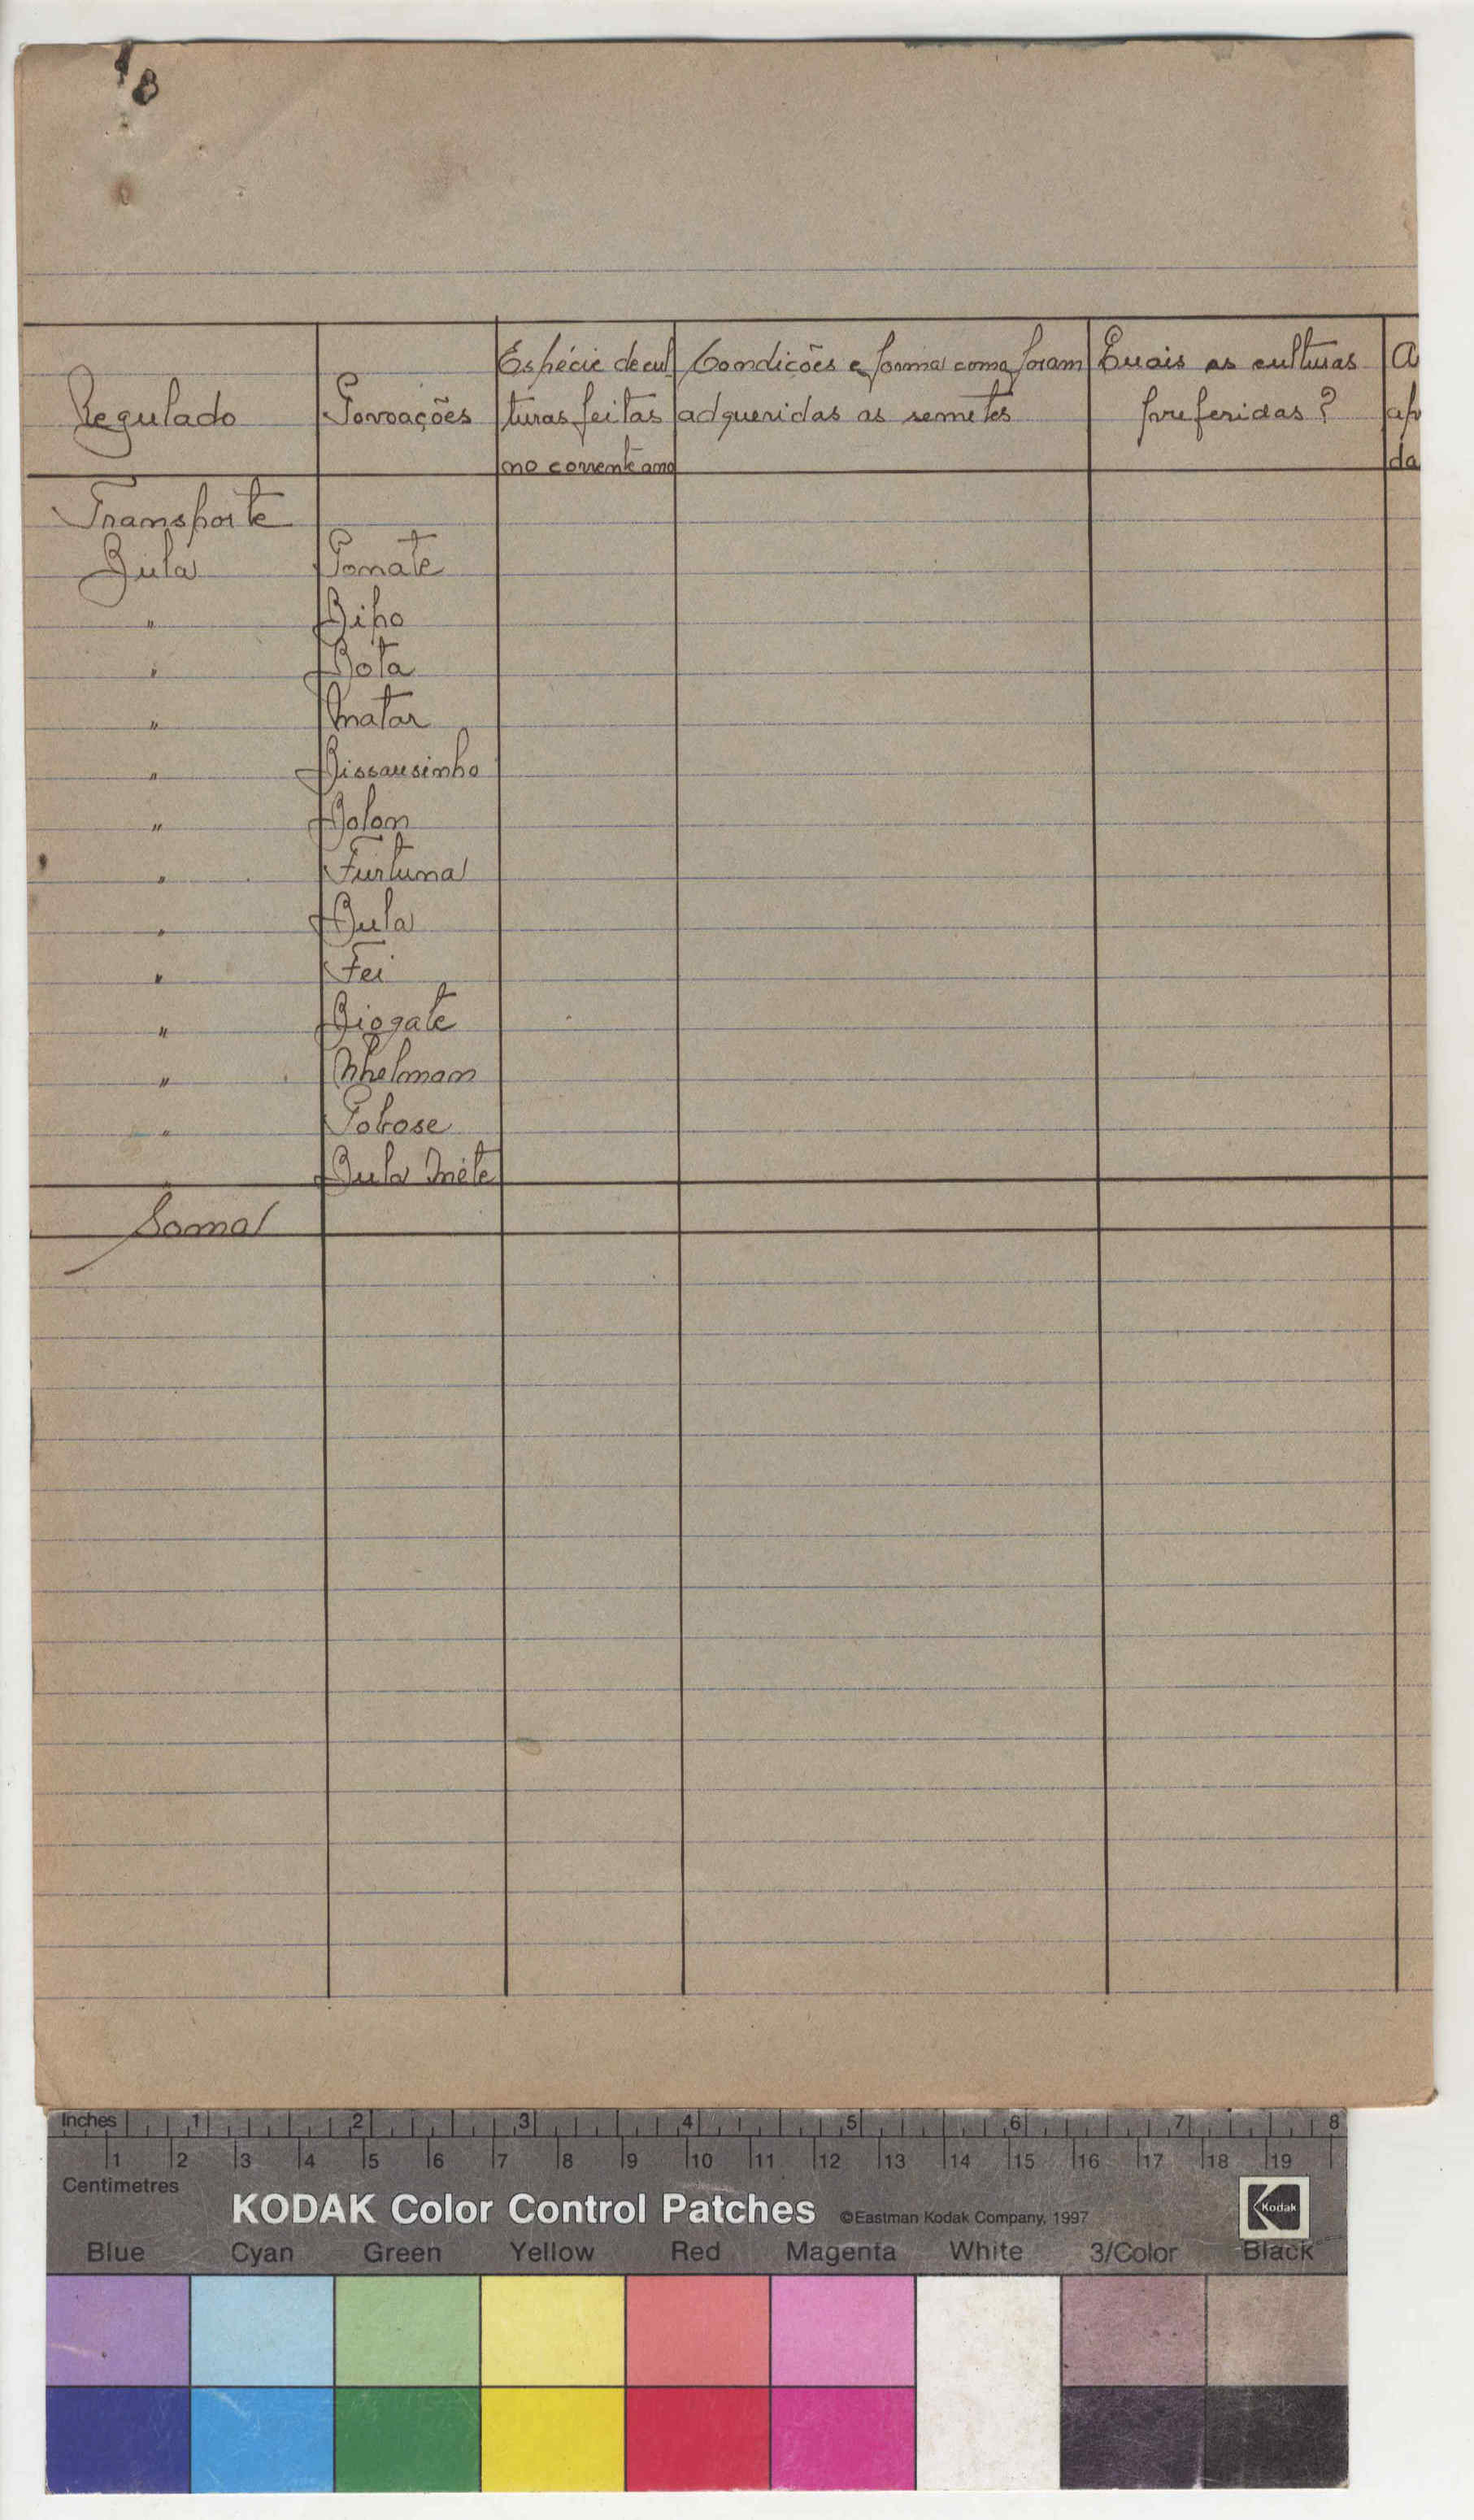 18
Regulado Povoações Espécie de cul- Condicões e forma como foram Quais as culturas A
turas feitas adqueridas as semetes preferidas? ap
no corrente ano da
Transporte
Bula Ponate
" Bipo
" Bóta
" Matar
" Bissausinho
" Bolon
" Furtuna
" Bula
" Fei
" Biogate
" Nhelman
" Pobose
" Bula Méte
Soma
Inches 1 2 3 4 5 6 7 8
1 2 3 4 5 6 7 8 9 10 11 12 13 14 15 16 17 18 19
Centimetres
KODAK Color Control Patches ©Eastman Kodak Company, 1997 Kodak
Blue Cyan Green Yellow Red Magenta White 3/Color Black